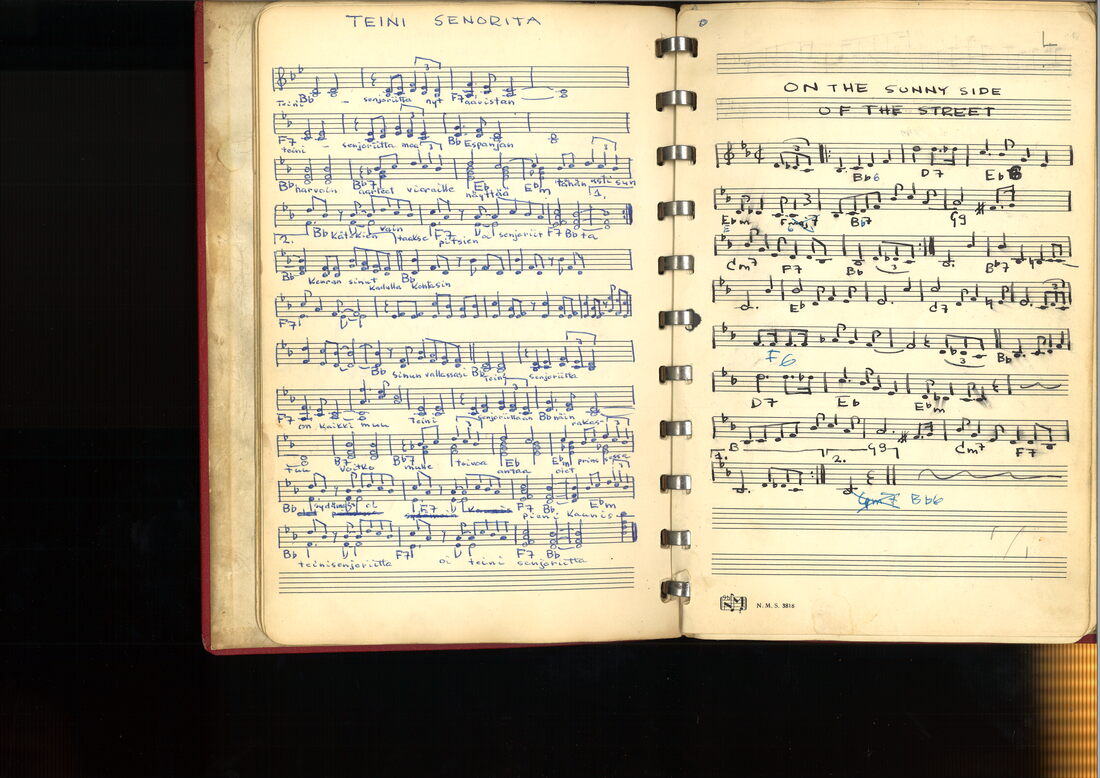 TEINI SENORITA
Bb F7
Teini - senjoriitta nyt
F7 Bb
teini - senjoriitta maa Espanjan
Bb Bb7 Eb Ebm
harvoin aarteet vieraille näyttää tähän asti sun
1.
Bb F7 F7 Bb
kätkien vain taakse pitsien senjoriit ta
2.
Bb Bb
Kerran sinut kadulla kohtasin
F7
Bb Bb
sinun vallassasi Teini senjoriitta
F7 Bb
on kaikki muu Teini senjoriittaan näin rakas-
B7 Bb7 Eb Ebm
tuu voitko mulle toivoa antaa oiet
Bb F7 F7 Bb Ebm
sydämessi pieni kaunis
Bb F7 F7 Bb
teinisenjoriitta oi teini senjoriitta
L
ON THE SUNNY SIDE
OF THE STREET
Bb6 D7 Eb
Ebm Bb7 G9
Cm7 F7 Bb Bb7
Eb C7
F6 Bb
D7 Eb Ebm
B G9 Cm7 F7
1. 2.
Bb6
N. M. S. 3818